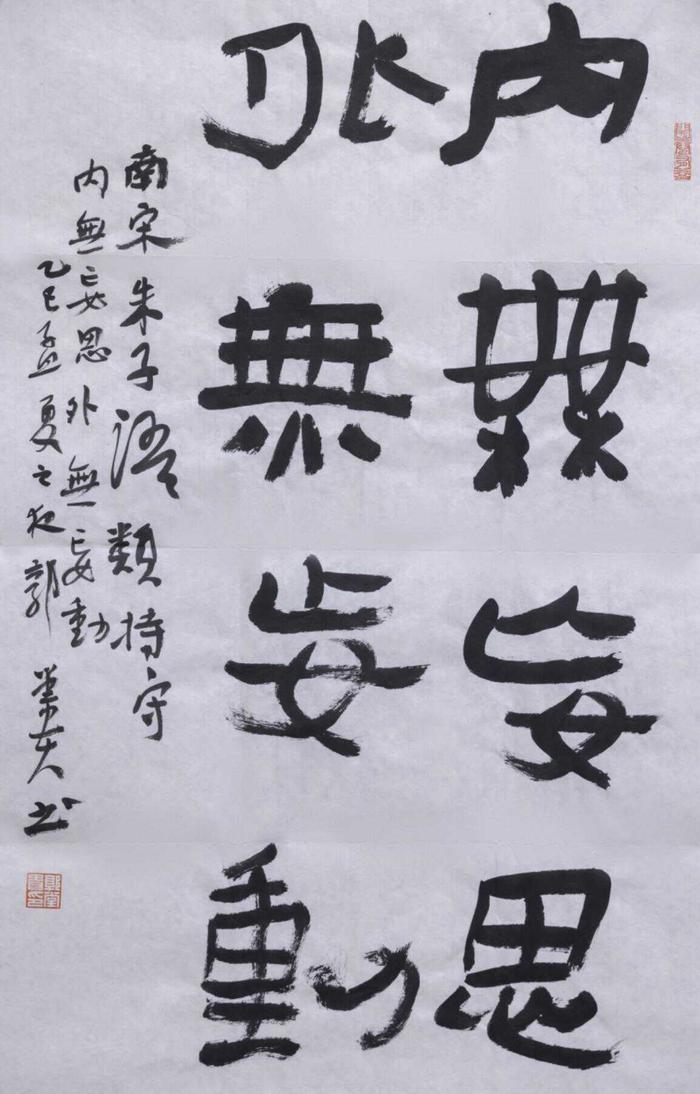 内無妄思
外無妄動
南宋朱子語類持守
内無妄思外無妄動
乙巳孟夏之夜郭書